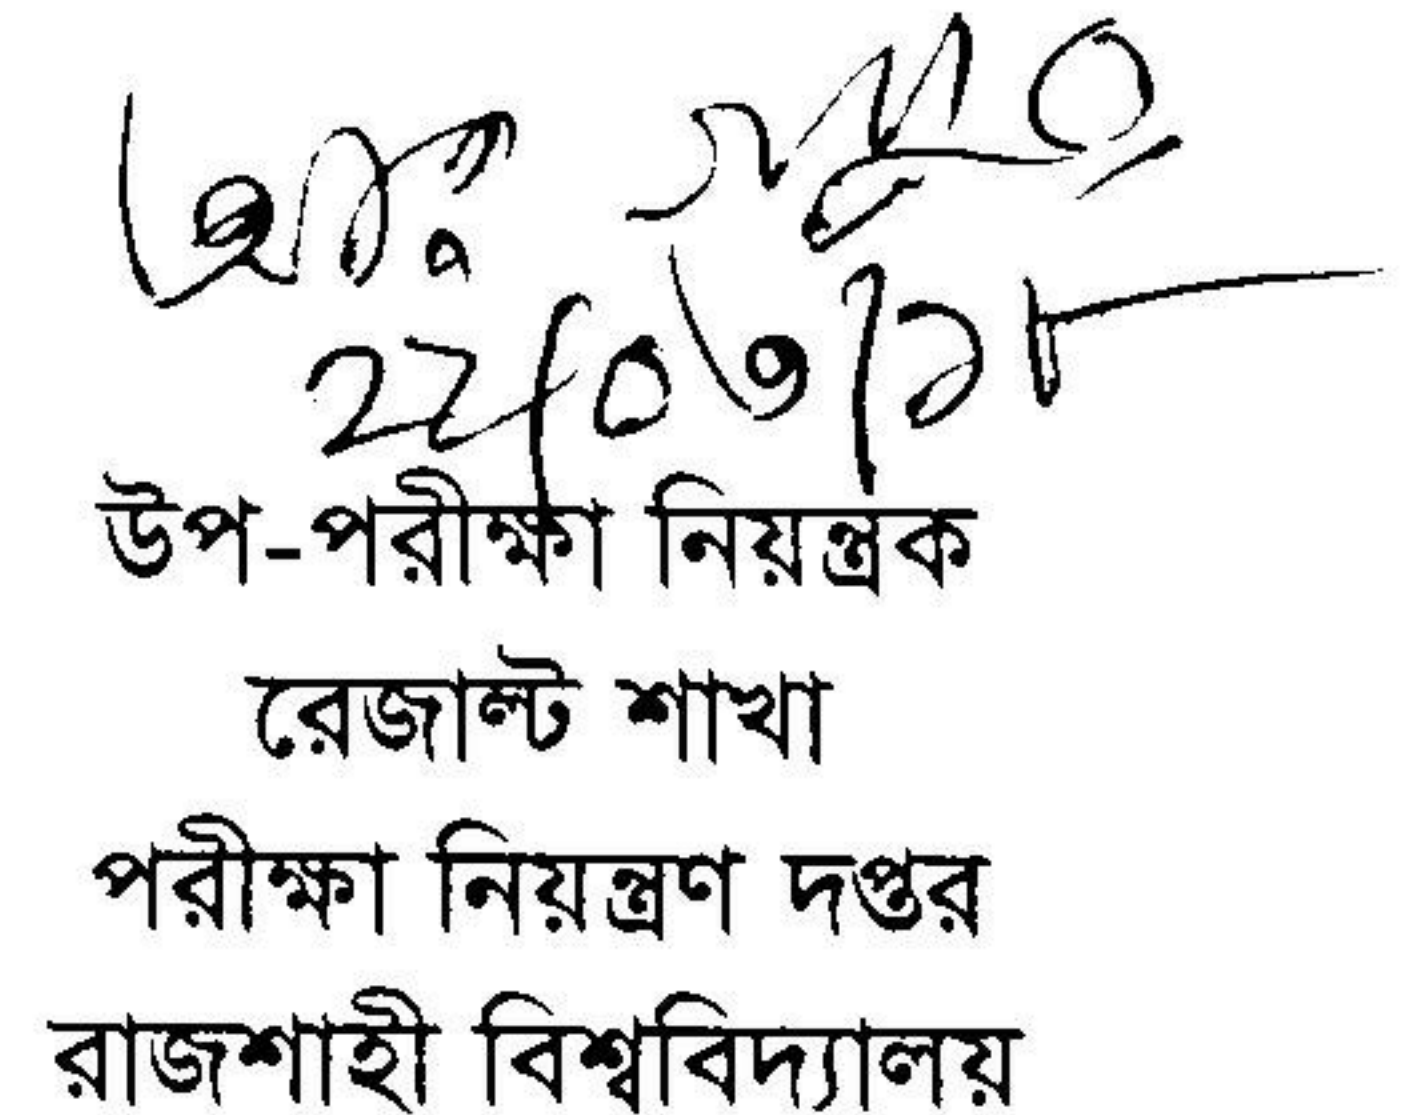 ২২/০৭/১৮
উপ-পরীক্ষা নিয়ন্ত্রক
রেজাল্ট শাখা
পরীক্ষা নিয়ন্ত্রণ দপ্তর
রাজশাহী বিশ্ববিদ্যালয়